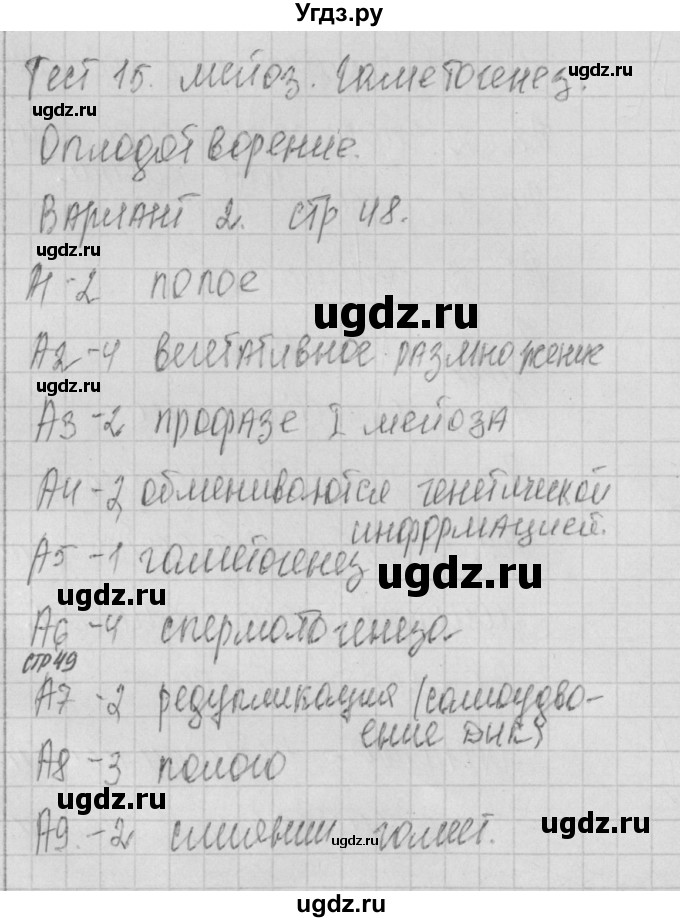 Угдз.ру
Тест 15. мейоз. Гаметогенез.
ugdz.ru
Оплодотворение.
Вариант 2. стр 48.
ugdz.ru
А1-2 полое
ugdz.ru
А2-4 вегетативное размножение
ugdz.ru
А3-2 профазе I мейоза
А4-2 обмениваются генетической
информацией.
А5-1 гаметогенез
ugdz.ru
ugdz.ru
А6-4 сперматогенеза
стр49
А7-2 редупликация (самоудво-
ение ДНК)
А8-3 полого
ugdz.ru
ugdz.ru
А9.-2 слиянии гамет.
ugdz.ru
ugdz.ru